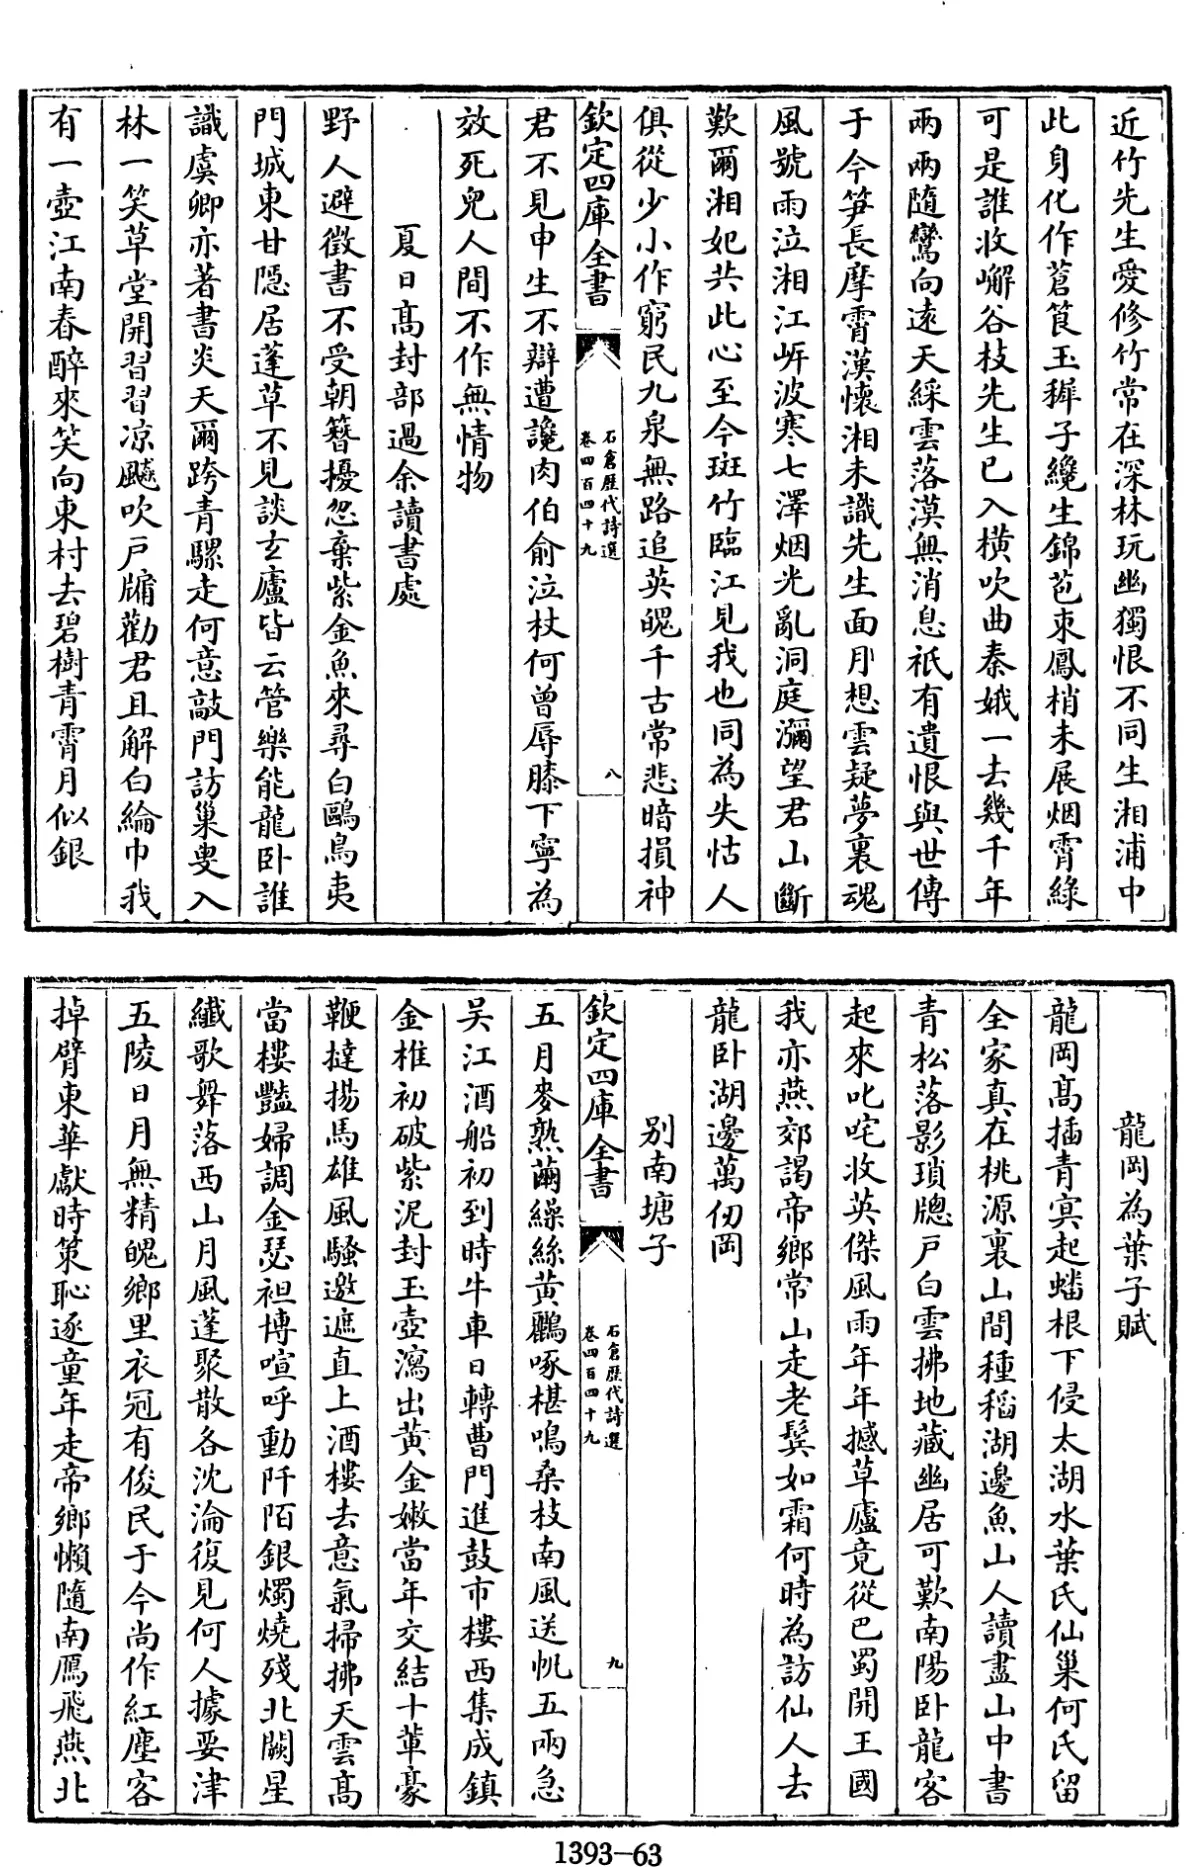 近竹先生愛修竹常在深林玩幽獨恨不同生湘浦中
此身化作蒼筤玉穉子纔生錦苞束鳳梢未展烟霄綠
可是誰收嶰谷枝先生已入橫吹曲秦娥一去幾千年
兩兩隨鸞向遠天綵雲落漠無消息祇有遺恨與世傳
于今笋長摩霄漢懷湘未識先生面月想雲疑夢裏魂
風號雨泣湘江岍波寒七澤烟光亂洞庭瀰望君山斷
歎爾湘妃共此心至今斑竹臨江見我也同為失怙人
俱從少小作窮民九泉無路追英魄千古常悲暗損神
欽定四庫全書
石倉歷代詩選
卷四百四十九
八
君不見申生不辯遭讒肉伯俞泣杖何曾辱膝下寧為
效死兒人間不作無情物
夏日髙封部過余讀書處
野人避徵書不受朝簪擾忽棄紫金魚來尋白鷗鳥夷
門城東甘隠居蓬草不見談玄廬皆云管樂能龍卧誰
識虞卿亦著書炎天爾跨青騾走何意敲門訪巢叟入
林一笑草堂開習習凉飈吹戸牖勸君且解白綸巾我
有一壺江南春醉來笑向東村去碧樹青霄月似銀
龍岡為葉子賦
龍岡髙插青冥起蟠根下侵太湖水葉氏仙巢何氏留
全家真在桃源裏山間種稻湖邊魚山人讀盡山中書
青松落影瑣牕戸白雲拂地藏幽居可歎南陽卧龍客
起來叱咤收英傑風雨年年撼草廬竟從巴蜀開王國
我亦燕郊謁帝鄉常山走老鬂如霜何時為訪仙人去
龍卧湖邊萬仞岡
別南塘子
欽定四庫全書
石倉歷代詩選
卷四百四十九
九
五月麥熟繭繰絲黄鸝啄椹鳴桑枝南風送帆五兩急
吳江酒船初到時牛車日轉曹門進鼓市樓西集成鎮
金椎初破紫泥封玉壺瀉出黄金嫩當年交結十軰豪
鞭撻揚馬雄風騷邀遮直上酒樓去意氣掃拂天雲髙
當樓豔婦調金瑟袒博喧呼動阡陌銀燭燒殘北闕星
纖歌舞落西山月風蓬聚散各沈淪復見何人據要津
五陵日月無精魄鄉里衣冠有俊民于今尚作紅塵客
掉臂東華獻時策恥逐童年走帝鄉懶隨南鴈飛燕北
1393-63